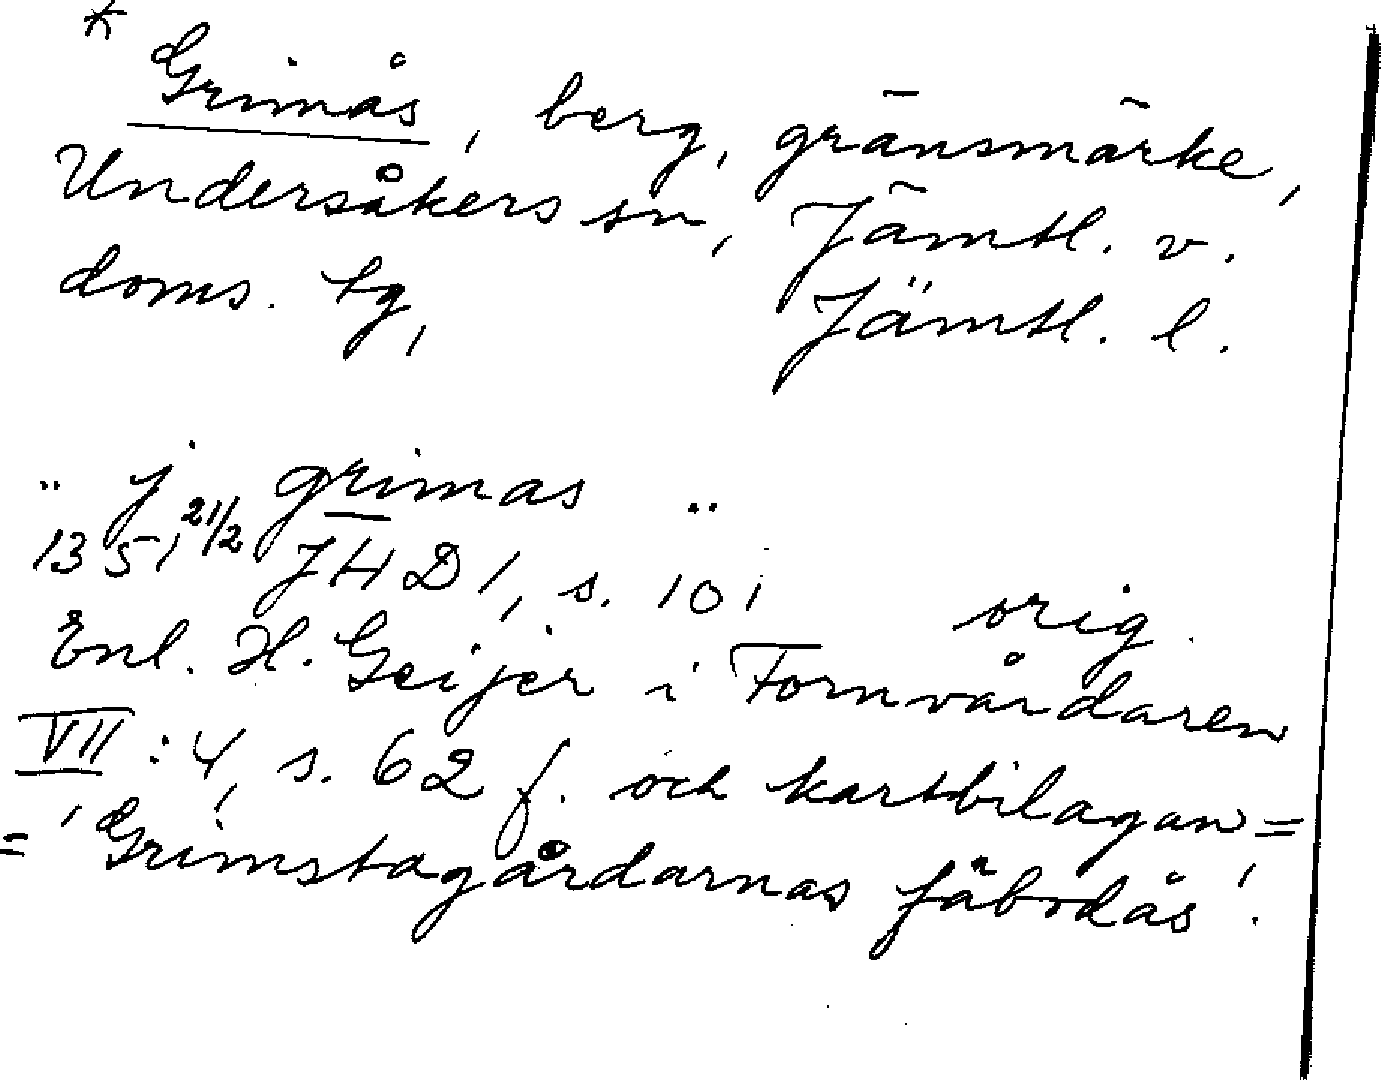 * Grimås, berg, gränsmärke,
Undersåkers sn, Jämtl. v.
doms. tg, Jämtl. l.
" j grimas "
1351 21/2 JHD 1, s. 101 orig.
Enl. H. Geijer i Fornvårdaren
VII : 4, s. 62 f. och kartbilagan =
= 'Grimstagårdarnas fäbodås'.